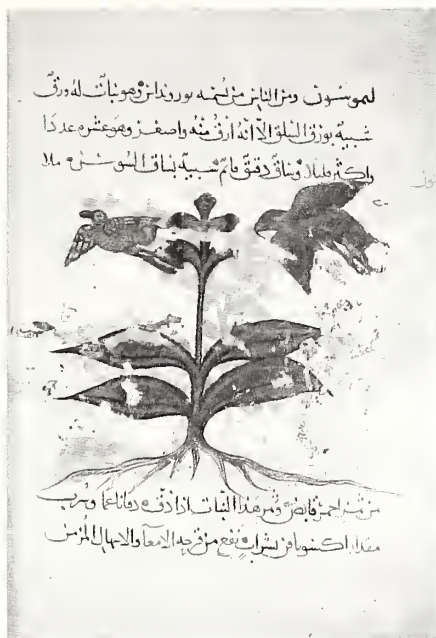 لىمونىون ومن الناس من يسميه نوروىدانس وهو نبات له ورق
شبيه بورق السلق الا انه ارق منه واصغر وهو عشره عددا
واكثر قليلا وساق دقيق قائم شبيه بساق السوسن ملا
من ثمر احمر قابض وثمر هذا النبات اذا دق دقا ناعما وشرب
مقدار اكسوبافن بشراب نفع من قرحه الامعآ والاسهال المزمن